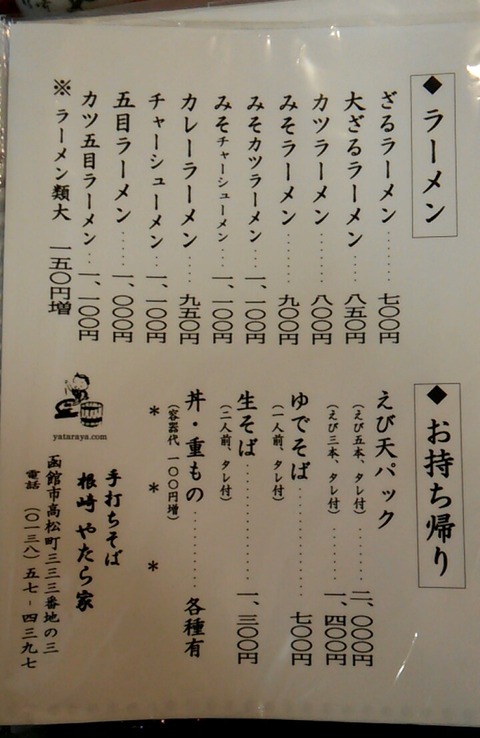 ◆ラーメン
ざるラーメン‥‥‥七〇〇円
大ざるラーメン‥‥八五〇円
カツラーメン‥‥‥八〇〇円
みそラーメン‥‥‥九〇〇円
みそカツラーメン‥一、一〇〇円
みそチャーシューメン‥一、一〇〇円
カレーラーメン‥‥九五〇円
チャーシューメン‥一、一〇〇円
五目ラーメン‥‥‥一、〇〇〇円
カツ五目ラーメン‥一、一〇〇円
※ラーメン類大 一五〇円増
◆お持ち帰り
えび天パック
(えび五本、タレ付)‥‥‥二、〇〇〇円
(えび三本、タレ付)‥‥‥一、四〇〇円
ゆでそば‥‥‥‥‥七〇〇円
(一人前、タレ付)
生そば‥‥‥‥‥‥一、三〇〇円
(二人前、タレ付)
丼・重もの‥‥‥‥各種有
(容器代 一〇〇円増)
* * *
手打ちそば
根崎 やたら家
函館市高松町三三三番地の三
電話 (〇一三八)五七-四三九七
yataraya.com